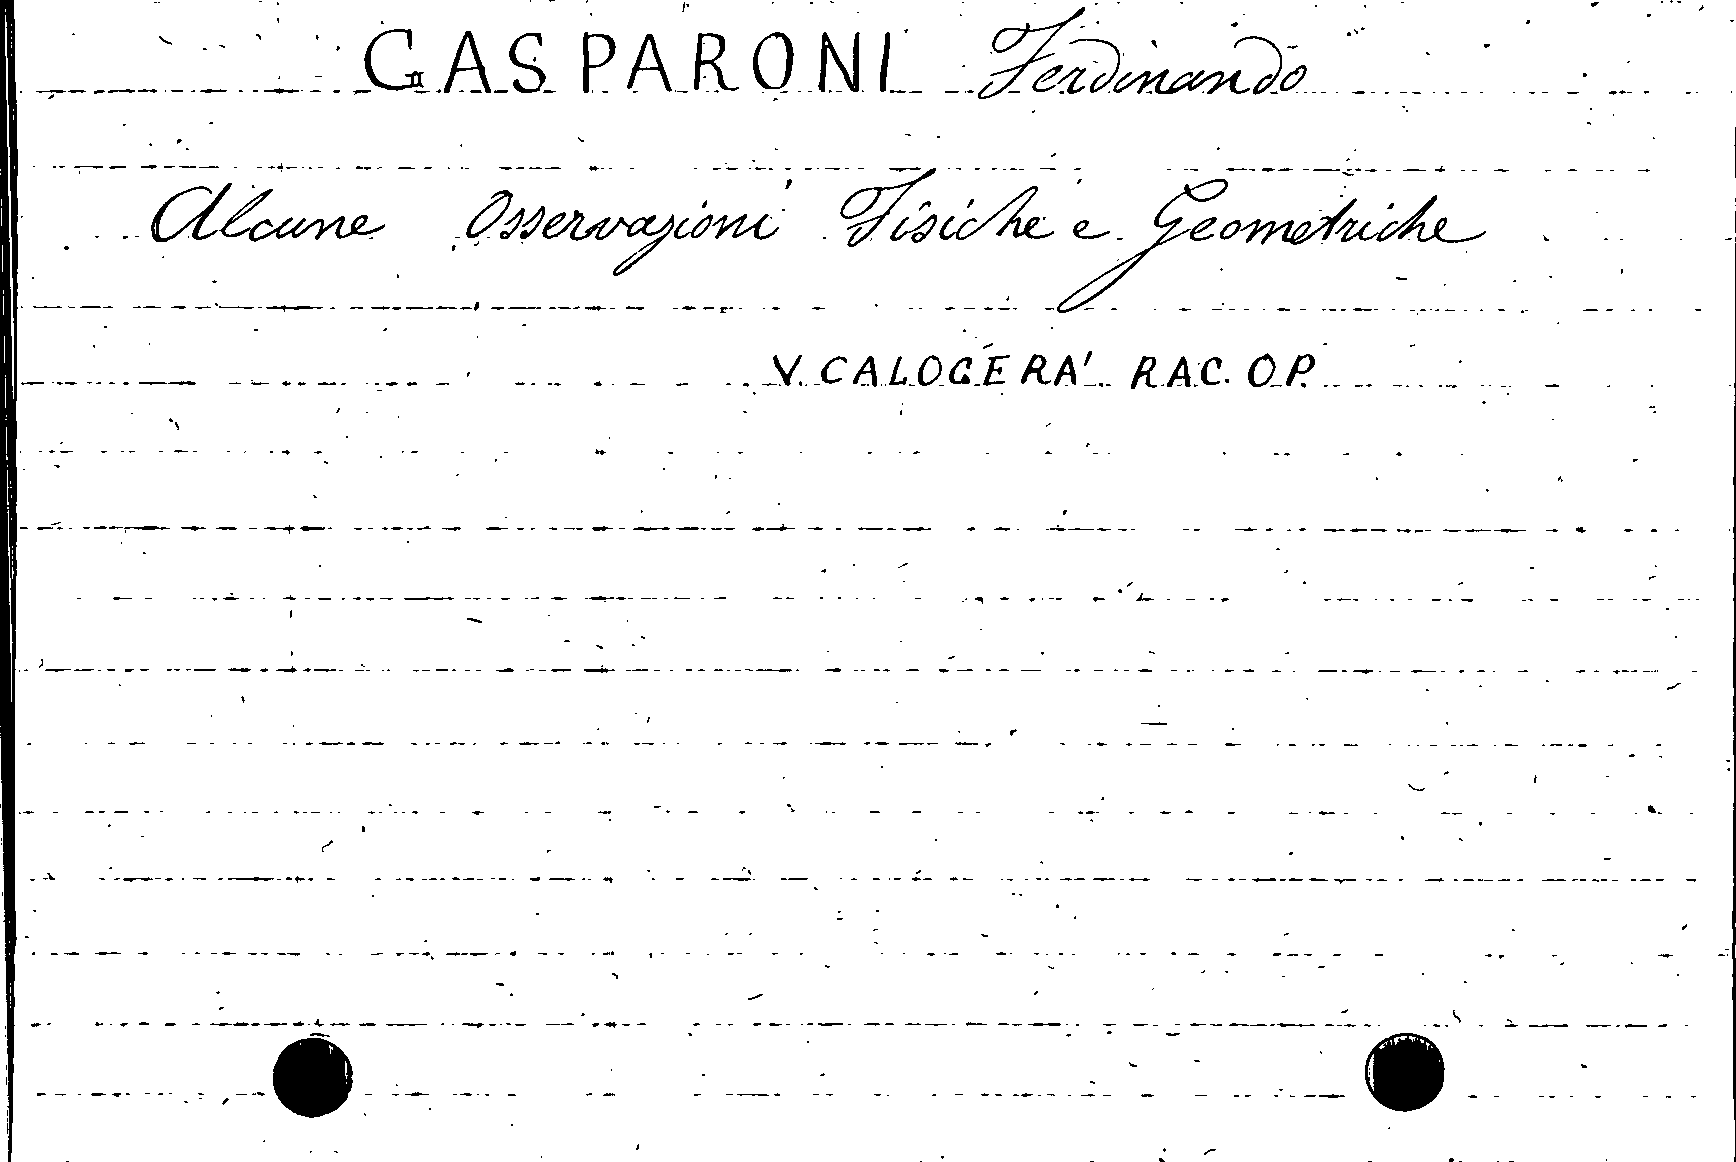 GASPARONI Ferdinando
Alcune Osservazioni Fisiche e Geometriche
V. CALOGERA' RAC. OP.